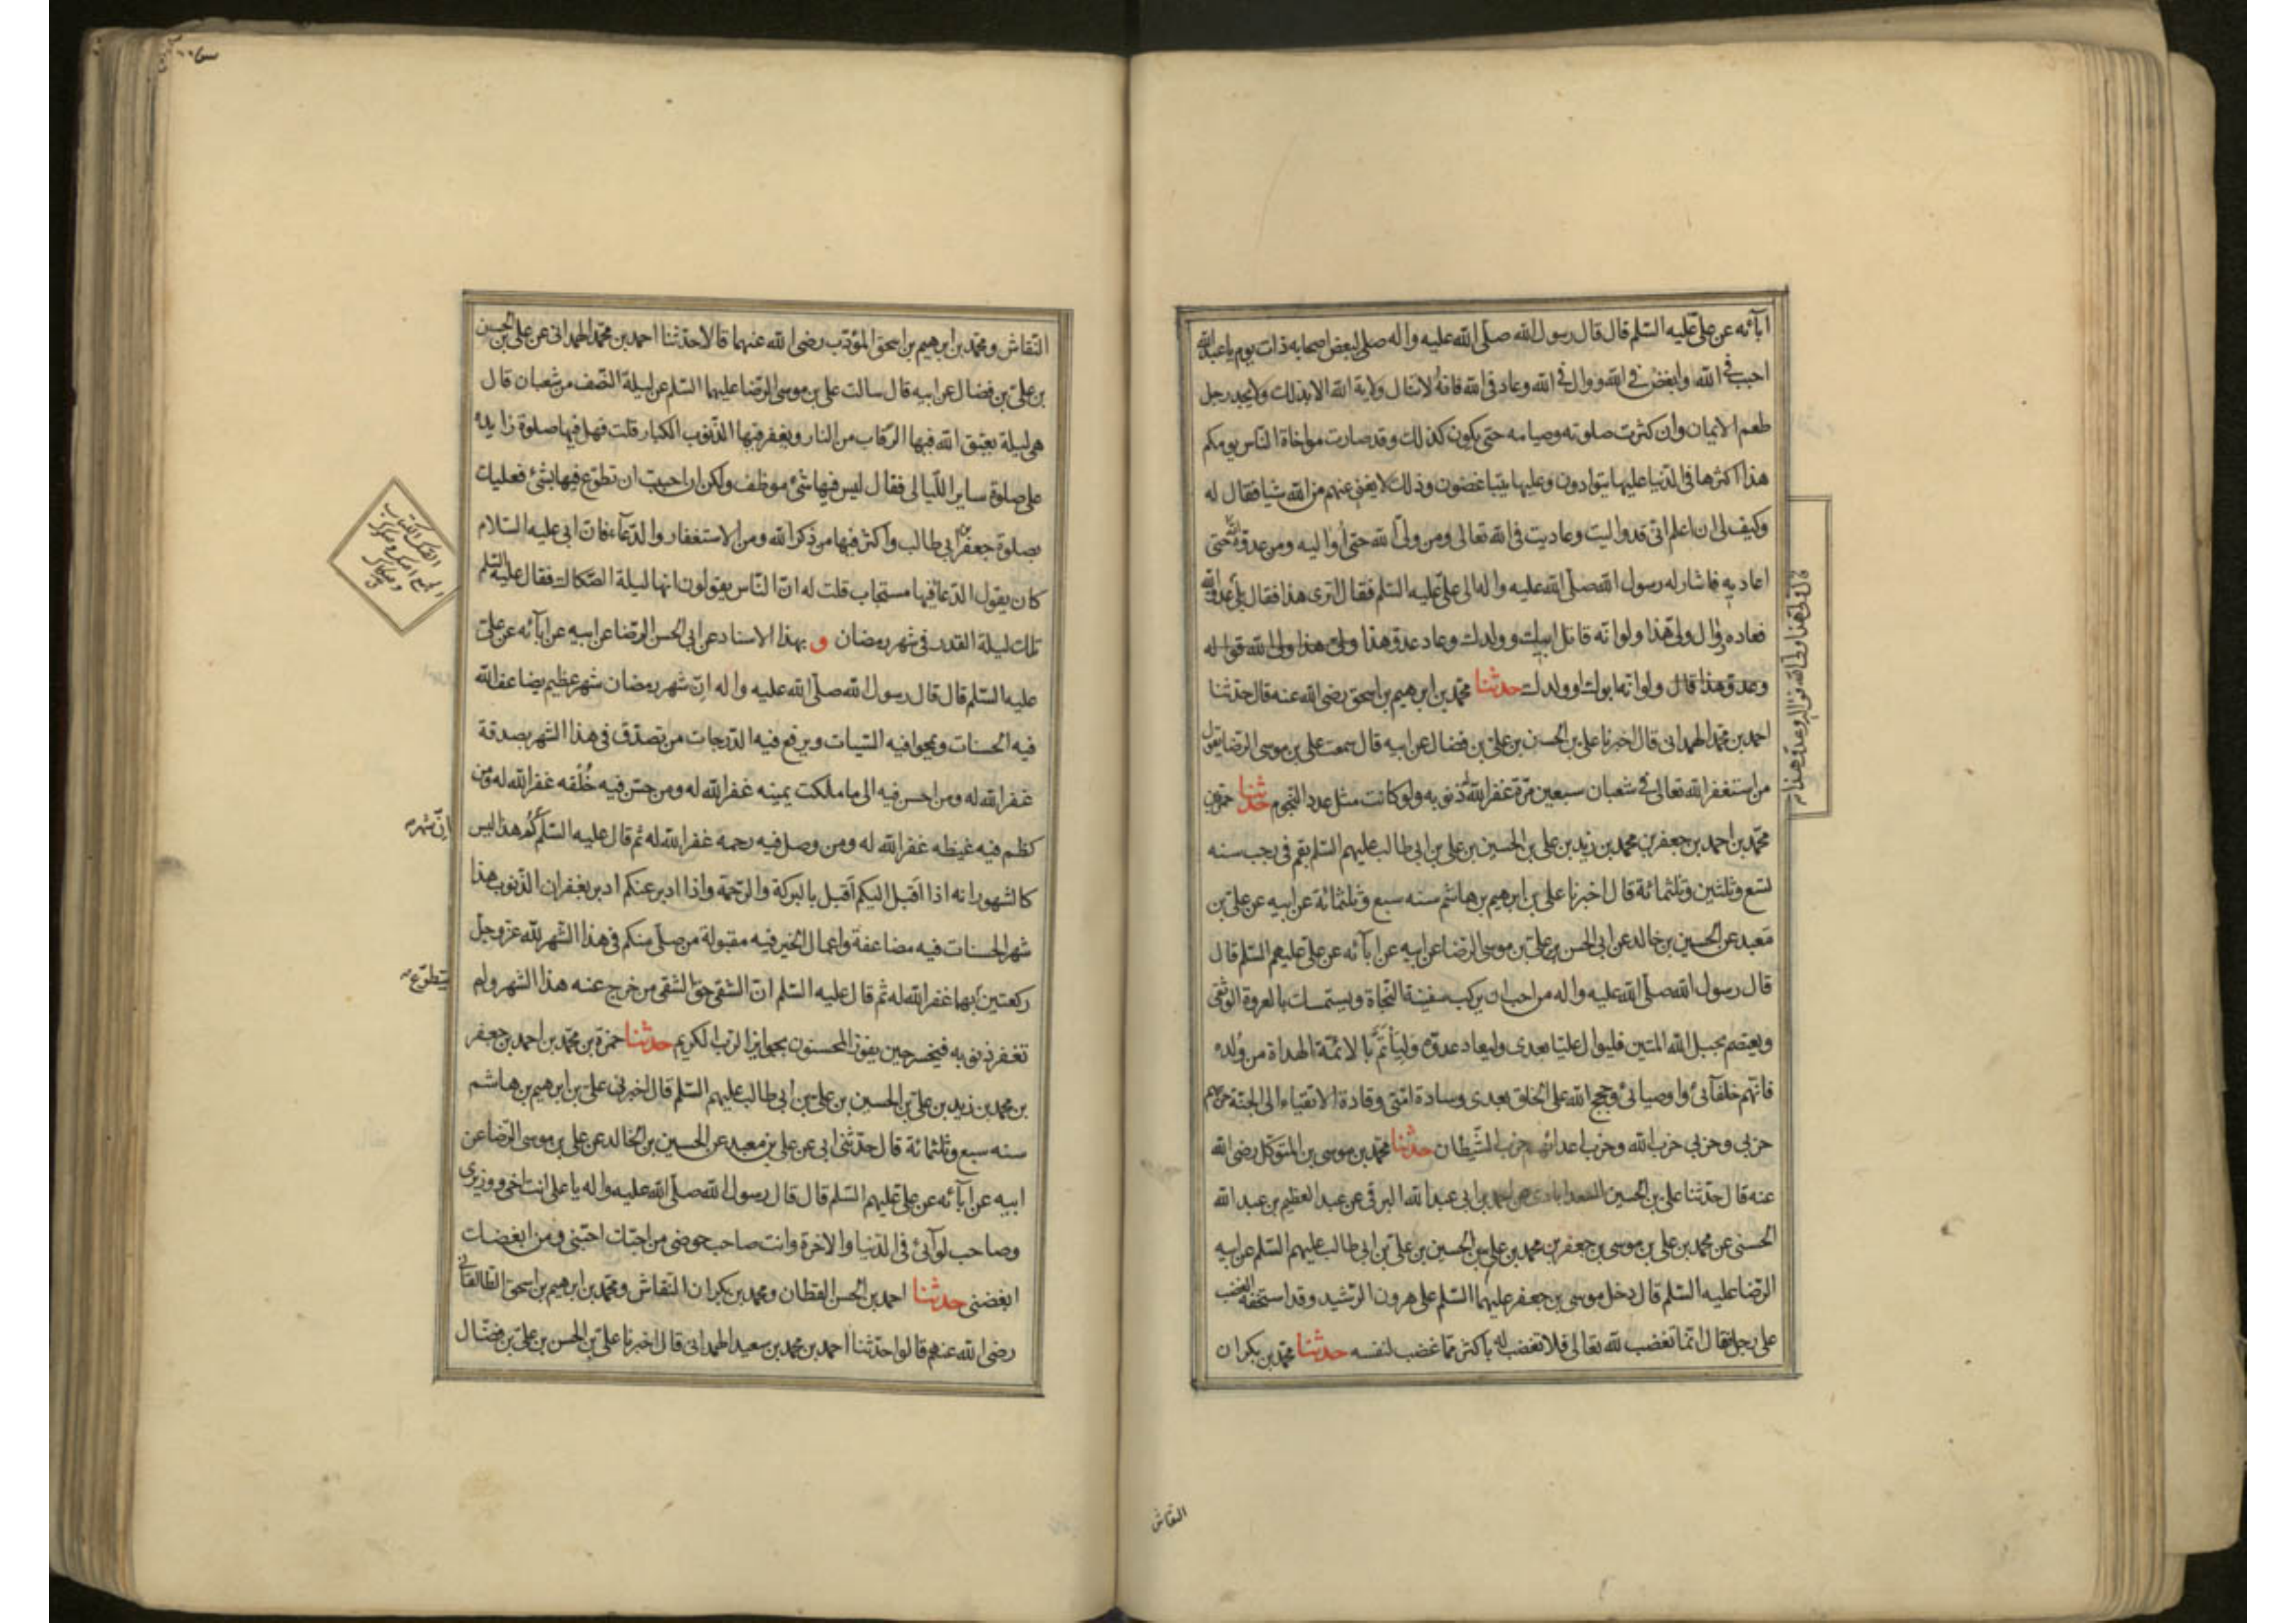 ابآئه عن علیّ علیه السّلم قال قال رسول الله صلّی الله علیه واله صلی لبعض اصحابه ذات یوم یا عبدالله
احبب فی الله وابغض فی الله ووال فی الله وعاد فی الله فانهُ لاتنال ولایة الله الا بذلك ولایجد رجل
طعم الایمان وان کثرت صلوته وصیامه حتی یکون کذلك وقد صارت مواخاة الناس یومکم
هذا اکثرها فی الدّنیا علیها یتوادون وعلیها یتباغضون وذلك لایغنی عنهم من الله شیا فقال له
وکیف لی ان اعلم انی قد والیت وعادیت فی الله تعالی ومن ولیّ الله حتی اوالیه ومن عدوّه حتی
اعادیه فاشار له رسول الله صلّی الله علیه واله الی علیّ علیه السّلم فقال اتری هذا فقال بلی
فعاده وال ولیّ هذا ولو انّه قاتل ابیك وولدك وعاد عدوّ هذا
وعدوّ هذا قال ولو انّه ابوك او ولدك حدثنا محمّد بن ابرهیم بن اسحق رضی الله عنه قال حدّثنا
احمد بن محمّد الهمدانی قال اخبرنا علی بن الحسن بن علیّ بن فضال عن ابیه قال سمعت علی بن موسی الرّضا یقول
من استغفر الله تعالی فی شعبان سبعین مرّة غفر الله ذنوبه ولو کانت مثل عدد النّجوم حدثنا حمزة بن
محمّد بن احمد بن جعفر بن محمد بن زید بن علی بن الحسین بن علی بن ابی طالب علیهم السّلم بقم فی رجب سنه
تسع وثلثین وثلثمائة قال اخبرنا علی بن ابرهیم بن هاشم سنه سبع وثلثمائة عن ابیه عن علیّ بن
معبد عن الحسین بن خالد عن ابی الحسن علیّ بن موسی الرضا عن ابیه عن ابآئه عن علیّ علیهم السّلم قال
قال رسول الله صلّی الله علیه واله من احب ان یرکب سفینة النّجاة ویستمسك بالعروة الوثقی
ویعتصم بحبل الله المتین فلیوال علیّا بعدی ولیعاد عدوّه ولیأتمّ بالائمّة الهداة من ولده
فانّهم خلفآئی واوصیائی وحجج الله علی الخلق بعدی وسادة امّتی وقادة الاتقیاء الی الجنّة حزبهم
حزبی وحزبی حزب الله وحزب اعدائهم حزب الشّیطان حدثنا محمّد بن موسی بن المتوکّل رضی الله
عنه قال حدّثنا علی بن الحسین السعدابادی عن احمد بن ابی عبد الله البرقی عن عبد العظیم بن عبد الله
الحسنی عن محمد بن علی بن موسی بن جعفر بن محمد بن علی بن الحسین بن علیّ بن ابی طالب علیهم السّلم عن ابیه
الرّضا علیه السّلم قال دخل موسی بن جعفر علیهما السّلم علی هرون الرّشید وقد استخفه الغضب
علی رجل فقال انّما تغضب لله تعالی فلا تغضب له باکثر ممّا غضب لنفسه حدثنا محمّد بن بکران
النقاش
النّقاش ومحمّد بن ابرهیم بن اسحق المؤدّب رضی الله عنهما قالا حدّثنا احمد بن محمّد الهمدانی عن علی بن الحسن
بن علیّ بن فضال عن ابیه قال سالت علی بن موسی الرّضا علیهما السّلم عن لیلة النّصف من شعبان قال
هی لیلة یعتق الله فیها الرّقاب من النار ویغفر فیها الذّنوب الکبار قلت فهل فیها صلوة زایدة
علی صلوة سایر اللّیالی فقال لیس فیها شئ موظف ولکن ان احببت ان تطوّع فیها بشئ فعلیك
بصلوة جعفر بن ابی طالب واکثر فیها من ذکر الله ومن الاستغفار والدّعآء فانّ ابی علیه السّلام
کان یقول الدّعا فیها مستجاب قلت له انّ النّاس یقولون انها لیلة الصّکاك فقال علیه السّلم
تلك لیلة القدر فی شهر رمضان و بهذا الاسناد عن ابی الحسن الرّضا عن ابیه عن ابآئه عن علیّ
علیه السّلم قال قال رسول الله صلّی الله علیه واله انّ شهر رمضان شهر عظیم یضاعف الله
فیه الحسنات ویمحوا فیه السّیات ویرفع فیه الدّرجات من تصدّق فی هذا الشّهر بصدقة
غفر الله له ومن احسن فیه الی ما ملکت یمینه غفر الله له ومن حسّن فیه خُلُقه غفر الله له ومن
کظم فیه غیظه غفر الله له ومن وصل فیه رحمه غفر الله له ثم قال علیه السّلم کُم هذا لیس
انّ شهر
کالشهور انه اذا اقبل الیکم اقبل بالبرکة والرّحمة واذا ادبر عنکم ادبر بغفران الذّنوب هذا
شهر الحسنات فیه مضاعفة واعمال الخیر فیه مقبولة من صلّی منکم فی هذا الشّهر لله عزوجل
رکعتین بهما غفر الله له ثم قال علیه السّلم انّ الشقی حقّ الشقی من خرج عنه هذا الشهر ولم
یتطوّع
تغفر ذنوبه فیخسر حین یفوز المحسنون بجوایز الرّب الکریم حدثنا حمزة بن محمّد بن احمد بن جعفر
بن محمد بن زید بن علیّ بن الحسین بن علی بن ابی طالب علیهم السّلم قال اخبرنی علیّ بن ابرهیم بن هاشم
سنه سبع وثلثمائة قال حدّثنی ابی عن علی بن معبد عن الحسین بن الخالد عن علی بن موسی الرّضا عن
ابیه عن ابآئه عن علیّ علیهم السّلم قال قال رسول الله صلّی الله علیه واله یا علی انت اخی ووزیری
وصاحب لوآئی فی الدّنیا والاخرة وانت صاحب حوضی من احبّك احبّنی ومن ابغضك
ابغضنی حدثنا احمد بن الحسن القطان ومحمد بن بکران النّقاش ومحمّد بن ابرهیم بن اسحق الطّالقانی
رضی الله عنهم قالوا حدّثنا احمد بن محمد بن سعید الهمدانی قال اخبرنا علیّ بن الحسن بن علیّ بن فضّال